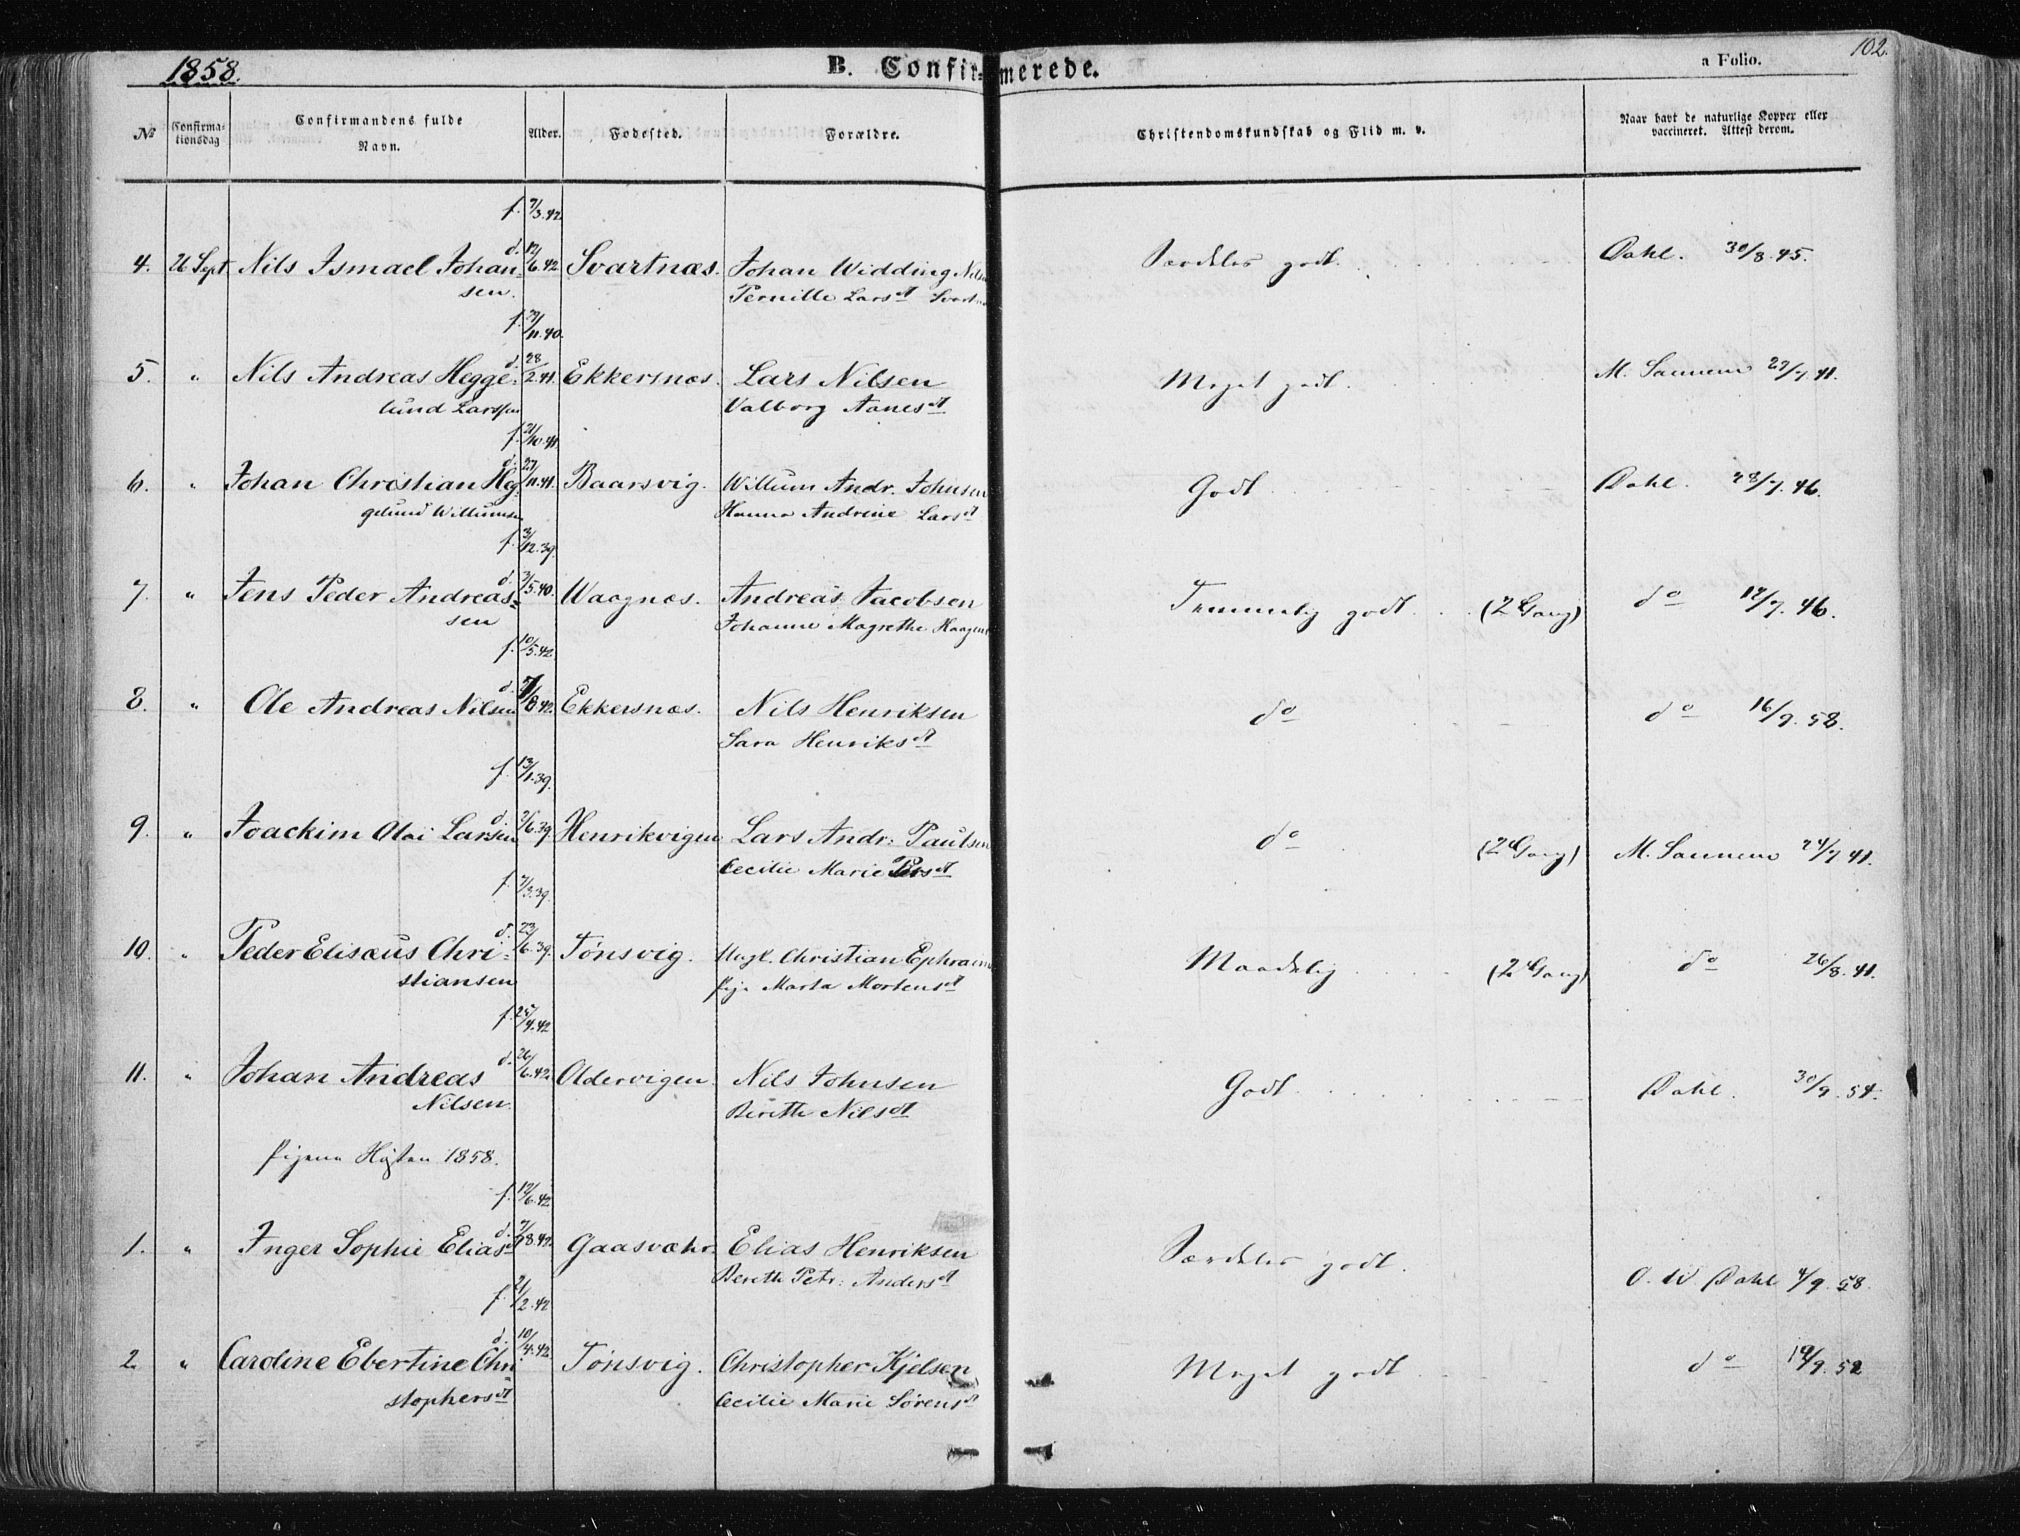 1858.
B. Confirmerede.
a Folio.
102.
No
Confirmationsdag
Confirmandens fulde Navn.
Alder.
Fødested.
Forældre.
Christendomskundskab og Flid m. v.
Naar havt de naturlige Kopper eller vaccineret. Attest derom.
f. 7/3.42.
4. 26 Sept Nils Ismael Johan d. 12/6.42. Svartnæs. Johan Widding Særdeles godt. Dahl. 30/8.45.
sen. Pernille Larsdt
f. /11.40.
5. " Nils Andreas Hegge- d. 28/2.41. Ekkersnæs. Lars Nilsen Meget godt. M. 27/7.41.
lund Larssen Valborg Aanesdt
f. 21/10.41.
6. " Johan Christian Heg d. 27/11.41. Baarsvig. Willum Andr. Johnsen Godt Dahl. 28/7.46.
gelund Willumsen Hanna Andrine Larsdt
f. 3/12.39.
7. " Jens Peder Andreas= d. 3/5.40. Waagnæs. Andreas Jacobsen Temmelig godt (2 Gang) do 12/7.46.
sen Johanne Magrethe
f. 10/5.42.
8. " Ole Andreas Nilsen d. /8.42. Ekkersnæs. Nils Henriksen do do 16/9.58.
Sara Henriksdt
f. 13/1.39.
9. " Joachim Olai Larsen d. 2/6.39. Henrikvigen Lars Andr: Paulsen do (2 Gang) M. 24/7.41.
Cecilie Marie Persdt
f. 7/3.39.
10. " Peder Elisæus Chri= d. 23/6.39. Tønsvig. Ungk. Christian Ephraim Maadelig (2 Gang) do 26/8.41.
stiansen Pige Marta Mortensdt
f. 25/4.42
11. " Johan Andreas d. 26/6.42. Oldervigen. Nils Johnsen Godt Dahl. 30/9.54.
Nilsen. Berethe Nilsdt
Pigerne Høsten 1858.
f. 12/6.42
1. " Inger Sophie Eliasdt d. 7/8.42. Gaasvæhr. Elias Henriksen Særdeles godt. O. W. Dahl 4/9.58
Berethe Petr: Andersdt
f. 21/2.42
2. " Caroline Ebertine Chri= d. 10/4.42. Tønsvig. Christopher Kjelsen Meget godt do 19/9.52
stophersdt Cecilie Marie Sørensdt